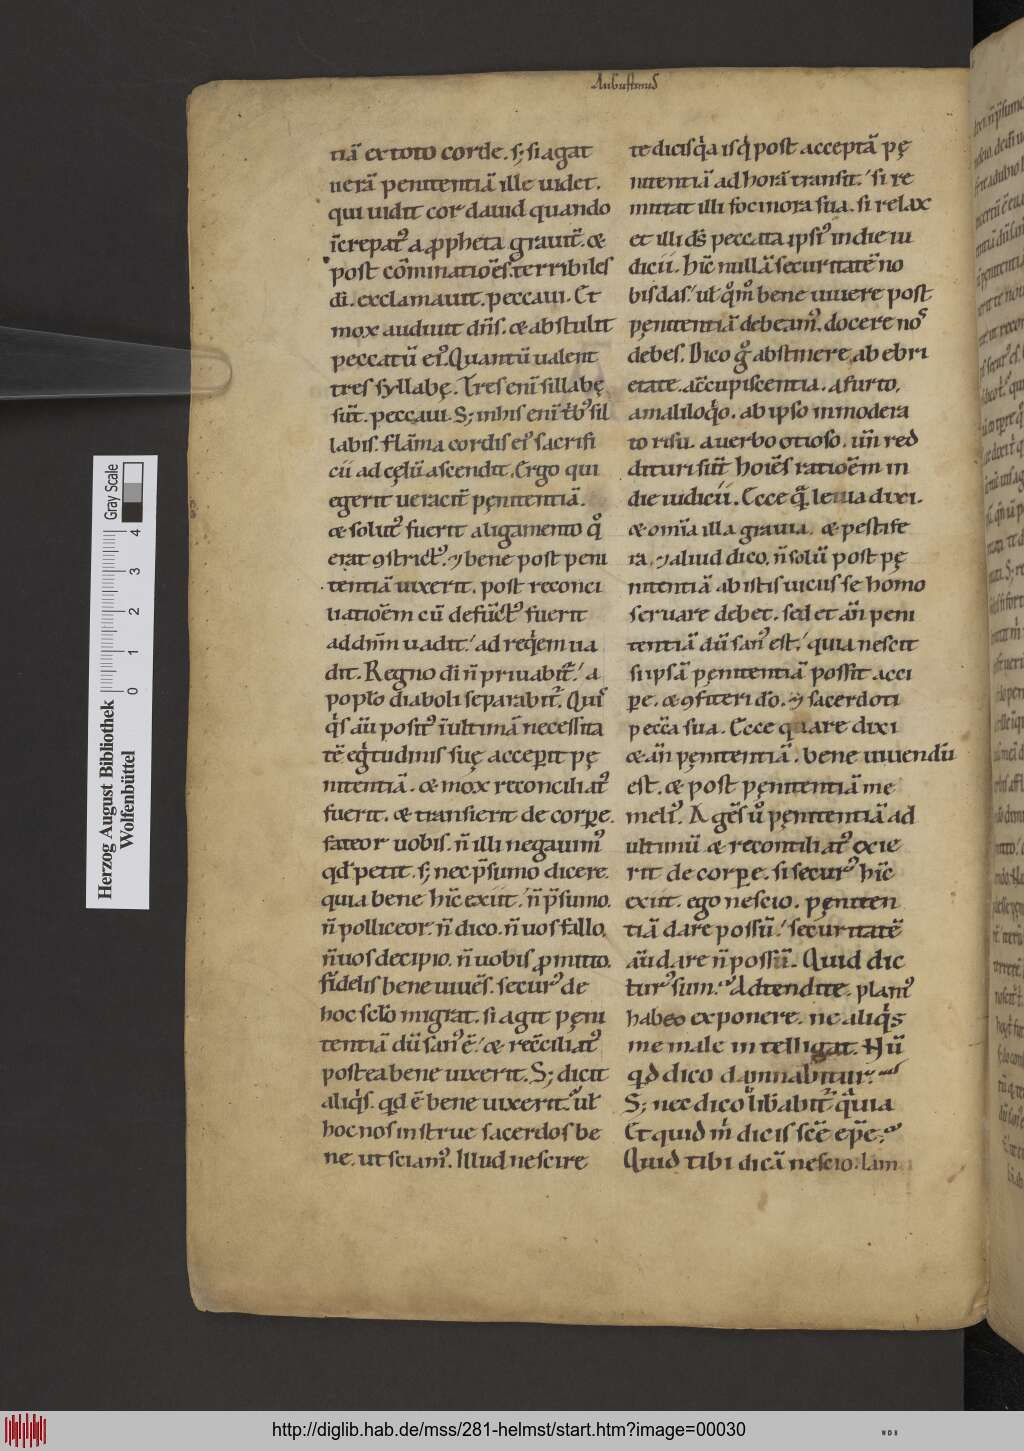 Augustinus
tiā ex toto corde. s; si agat
uerā penitentiā ille uidet.
qui uidit cor dauid quando
īcrepatꝰ a ꝓpheta grauit̄. æ
post cōminatiōēs terribiles
dī. exclamauit. peccaui. Et
mox audiuit dn̄s. æ abstulit
peccatū eiꝰ. Quantū ualent
tres syllabę. Tres eni͞ sillabę
sūt. peccaui. S; inhis eni͞ t̄bꝰ sil
labis. flāma cordis eiꝰ sacrifi
ciū ad cęlū ascendit. Ergo qui
egerit ueracit̄ pęnitentiā.
æ solutꝰ fuerit aligamento qͦ
erat ꝯstrictꝰ. ⁊ bene post peni
tentiā uixerit. post reconci
liatiōēm cū defūctꝰ fuerit
addn̄m uadit. ad reqͥem ua
dit. Regno dī n̄ priuabit̄. a
popło diaboli separabit̄. Quiſ
qͥs aūt positꝰ īultimā necessita
tē ęgͥtudinis suę acceꝑit pę
nitentiā. æ mox reconciliatꝰ
fuerit. æ transierit de corꝑe.
fateor uobis. n̄ illi negauimꝰ
qđ petit. s; nec p̄sumo dicere.
quia bene hīc exiit. n̄ p̄sumo.
n̄ polliceor. n̄ dico. n̄ uos fallo.
n̄ uos decipio. n̄ uobis ꝓmitto.
fidelis bene uiuēs. securꝰ de
hoc scło migrat. si agit pęni
tentiā dū sanꝰ ē. æ recͨciliatꝰ
postea bene uixerit. S; dicit
aliqͥs. qđ ē bene uixerit. uł
hoc nos instrue sacerdos be
ne. ut sciamꝰ. Illud nescire
te dicis qͥa is qͥ post acceptā pę
nitentiā ad horā transit. si re
mittat illi focinora sua. si relax
et illi dſ̄ peccata ipsiꝰ in die iu
dicii. hīc nullā securitatē no
bis das. uł qͦmͦ bene uiuere post
pęnitentiā debeamꝰ. docere noſ
debes. Dico gͦ abstinere ab ebri
etate. a cͨcupiscentia. a furto.
a maliloqͦo. ab ipso inmodera
to risu. a uerbo otioso. un̄ red
dituri sūt hoīēs ratiōēm in
die iudicii. Ecce qͣ leuia dixi.
æ omīa illa grauia. æ pestife
ra. ⁊ aliud dico. n̄ solū post pę
nitentiā ab istis uiciis se homo
seruare debet. sed et an̄ peni
tentiā dū sanꝰ est. quia nescit
si ipsā pęnitentiā possit acci
ꝑe. æ ꝯfiteri dō. ⁊ sacerdoti
peccͣ sua. Ecce quare dixi
æ an̄ pęnitentiā. bene uiuendū
est. æ post pęnitentiā me
meliꝰ. Agēs uͦ pęnitentiā ad
ultimū æ reconciliatꝰ exie
rit de corꝑe. si securꝰ hīc
exiit. ego nescio. pęniten
tiā dare possū. securitatē
aūt dare n̄ possū. Quid dic
turꝰ sum. Adtendite. planiꝰ
habeo exponere. ne aliqͥs
me male intelligat. Nū
qđ dico damnabitur.
S; nec dico liƀabit̄ qͥa
Et quid mͥ dicis scē eꝑe.
Quid tibi dicā nescio. Iam
Herzog August Bibliothek
Wolfenbüttel
Gray Scale
0 1 2 3 4
http://diglib.hab.de/mss/281-helmst/start.htm?image=00030
WDB